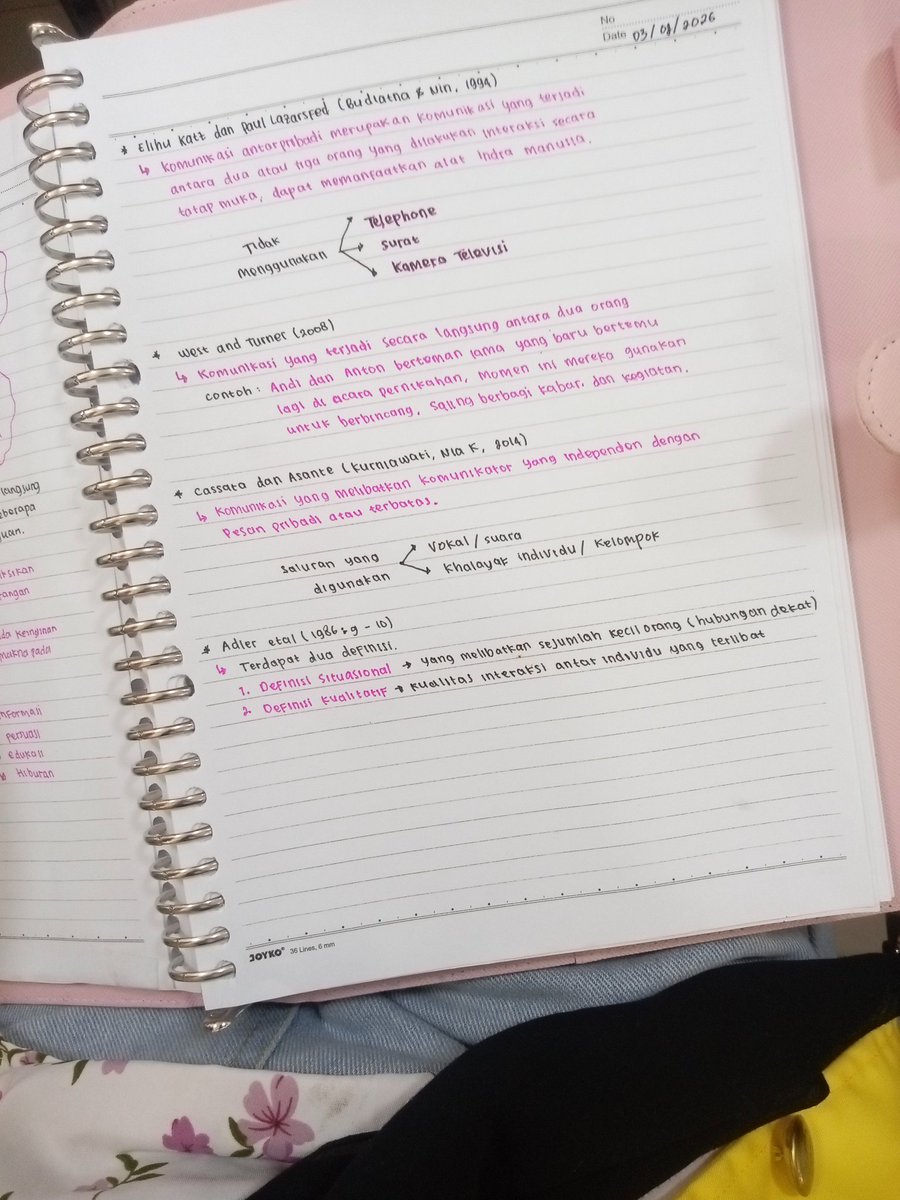 No
Date 03/08/2026
* Elihu Katt dan Paul Lazarsfed (Budiatna & Nin, 1994)
↳ Komunikasi antarpribadi merupakan komunikasi yang terjadi
antara dua atau tiga orang yang dilakukan interaksi secara
tatap muka, dapat memanfaatkan alat indra manusia.
Tidak
menggunakan
Telephone
Surat
Kamera Televisi
* West and Turner (2008)
↳ Komunikasi yang terjadi secara langsung antara dua orang
contoh: Andi dan Anton berteman lama yang baru bertemu
lagi di acara pernikahan, Momen ini mereka gunakan
untuk berbincang, saling berbagi kabar, dan kegiatan.
* Cassata dan Asante (Kurniawati, Nia K, 2014)
↳ Komunikasi yang melibatkan komunikator yang independen dengan
Pesan pribadi atau terbatas.
Saluran yang
digunakan
Vokal / suara
Khalayak individu / Kelompok
* Adler etal (1986:9-10)
↳ Terdapat dua definisi.
1. Definisi Situasional → yang melibatkan sejumlah kecil orang (hubungan dekat)
2. Definisi Kualitatif → Kualitas interaksi antar individu yang terlibat
JOYKO® 36 Lines, 6 mm
langsung
eberapa
juan.
rangan
keinginan
makna pada
nformasi
persuasi
edukasi
Hiburan